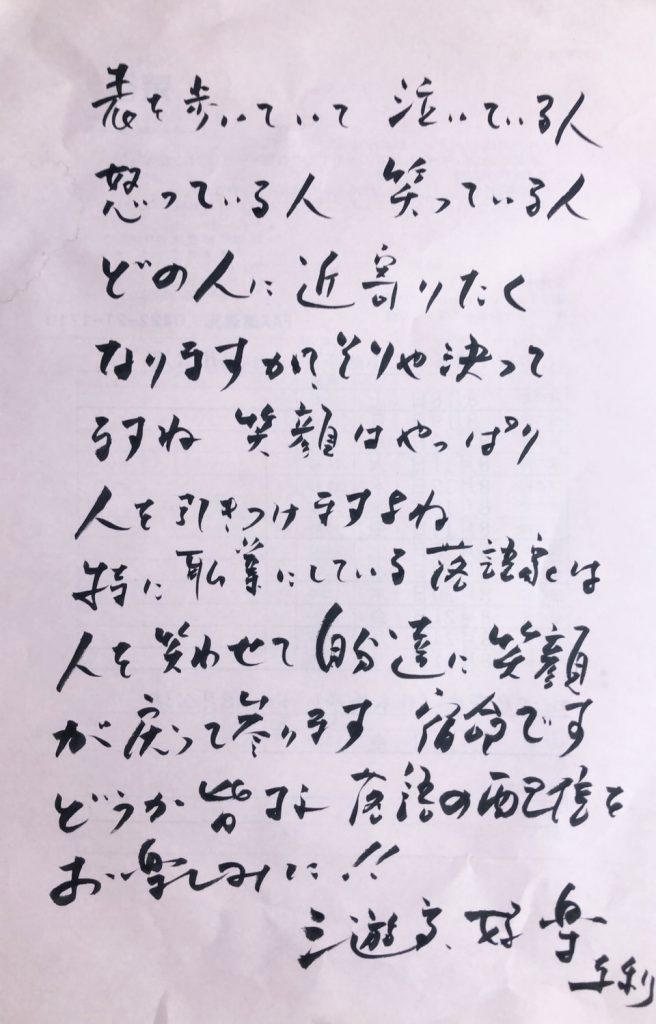 表を歩いていて 泣いている人
怒っている人 笑っている人
どの人に近寄りたく
なりますか?そりゃ決って
ますね 笑顔はやっぱり
人を引きつけますよね
特に職業にしている落語家は
人を笑わせて自分達に笑顔
が戻って参ります 宿命です
どうか皆さま 落語の配信を
お楽しみに!!
三遊亭好楽